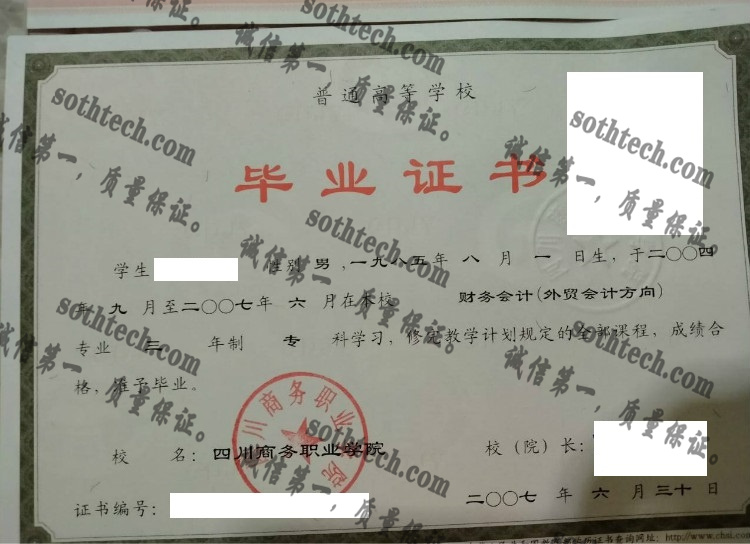 普通高等学校
毕业证书
学生 性别 男，一九八五年 八 月 一 日生，于二〇〇四
年 九 月至二〇〇七年 六 月在本校 财务会计(外贸会计方向)
专业 三 年制 专 科学习，修完教学计划规定的全部课程，成绩合
格，准予毕业。
四川商务职业学院
校 名：四川商务职业学院 校（院）长：
证书编号： 二〇〇七 年 六 月 三十 日
证书查询网址：http://www.chsi.
sothtech.com
诚信第一，质量保证。
sothtech.com
诚信第一，质量保证。
sothtech.com
诚信第一，质量保证。
sothtech.com
诚信第一，质量保证。
sothtech.com
诚信第一，质量保证。
sothtech.com
诚信第一，质量保证。
sothtech.com
诚信第一，质量保证。